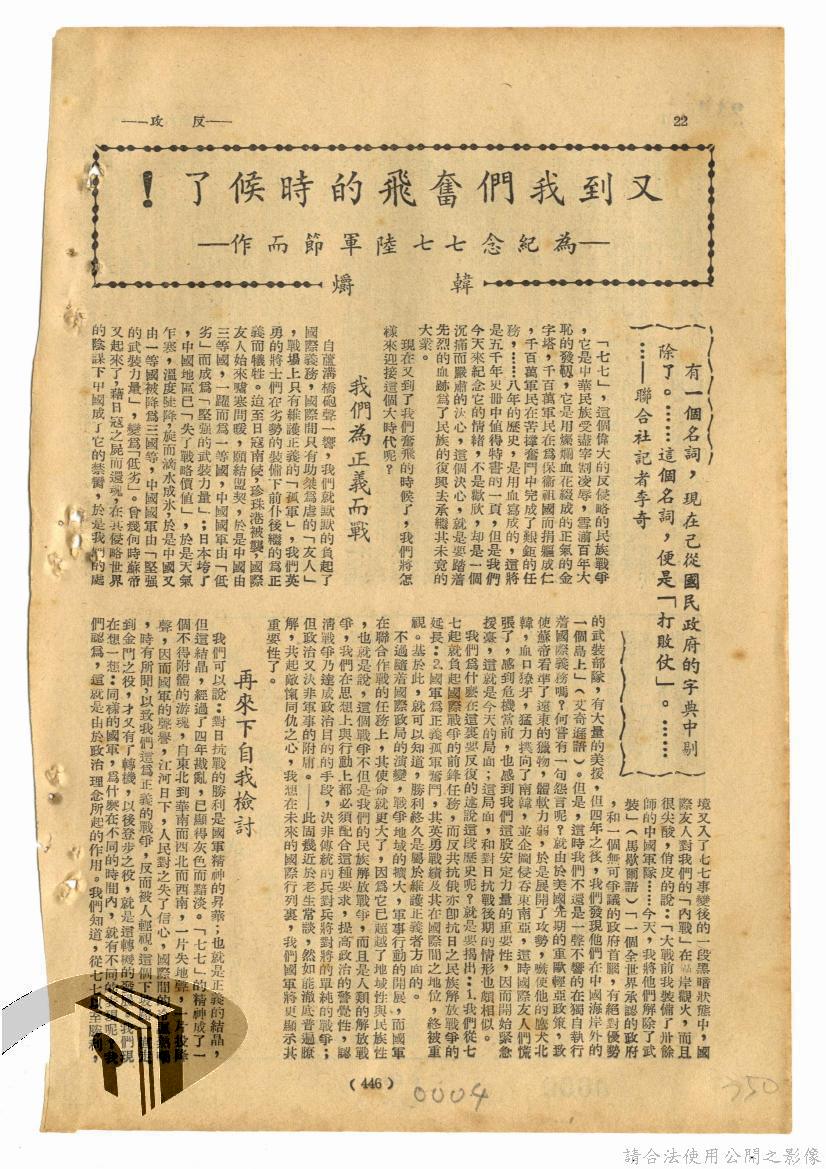 22
——反攻——
又到我們奮飛的時候了！
——為紀念七七陸軍節而作——
韓爝
有一個名詞，現在已從國民政府的字典中剔
除了。……這個名詞，便是「打敗仗」。……
……——聯合社記者李奇
「七七」，這個偉大的反侵略的民族戰爭
，它是中華民族受盡宰割凌辱，雪湔百年大
恥的發軔，它是用爛爛血花綴成的正氣的金
字塔，千百萬軍民在為保衞祖國而捐軀成仁
，千百萬軍民在苦撐奮鬥中完成了艱鉅的任
務，……八年的歷史，是用血寫成的，這將
是五千年史册中值得特書的一頁，但是我們
今天來紀念它的情緒，不是歡欣，却是一個
沉痛而嚴肅的決心，這個決心，就是要踏着
先烈的血跡爲了民族的復興去承繼其未竟的
大業。
現在又到了我們奮飛的時候了，我們將怎
樣來迎接這個大時代呢？
我們為正義而戰
自蘆溝橋砲聲一響，我們就默默的負起了
國際義務，國際間只有助桀爲虐的「友人」
，戰場上只有維護正義的「孤軍」，我們英
勇的將士們在劣勢的裝備下前仆後繼的爲正
義而犧牲。迨至日寇南侵，珍珠港被襲，國際
友人始來噓寒問暖，願結盟契，於是中國由
三等國，一躍而爲一等國，中國國軍由「低
劣」而成爲「堅强的武裝力量」；日本垮了
，中國地區已「失了戰略價値」，於是天氣
乍寒，溫度陡降，旋而滴水成氷，於是中國又
由一等國被降爲三國等，中國國軍由「堅强
的武裝力量」，變爲「低劣」。曾幾何時蘇帝
又起來了，藉日寇之屍而還魂，在其侵略世界
的陰謀下中國成了它的禁臠，於是我們的處
境又入了七七事變後的一段黑暗狀態中，國
際友人對我們的「內戰」在隔岸觀火，而且
很尖酸，俏皮的說：「大戰前我裝備了卅餘
師的中國軍隊……今天，我將他們解除了武
裝」（馬歇爾語）「一個全世界承認的政府
，和一個無可爭議的政府首腦，有絕對優勢
的武裝部隊，有大量的美援，但四年之後，我們發現他們在中國海岸外的
一個島上」（艾奇遜語）。但是，這時我們不還是一聲不響的在獨自執行
着國際義務嗎？何嘗有一句怨言呢？就由於美國先期的重歐輕亞政策，致
使蘇帝看準了遠東的獵物，體軟力弱，於是展開了攻勢，嗾使他的鷹犬北
韓，血口獠牙，猛力撲向了南韓，並企圖侵吞東南亞，這時國際友人們慌
張了，感到危機當前，也感到我們這股安定力量的重要性，因而開始緊急
援臺，這就是今天的局面；這局面，和對日抗戰後期的情形也頗相似。
我們爲什麼在這裏要反復的述說這段歷史呢？就是要揭出：1.我們從七
七起就負起國際戰爭的前鋒任務，而反共抗俄亦卽抗日之民族解放戰爭的
延長；2.國軍爲正義孤軍奮鬥，其英勇戰績及其在國際間之地位，終被重
視。基於此，就可以知道，勝利終久是屬於維護正義者方面的。
不過隨着國際政局的演變，戰爭地域的擴大，軍事行動的開展，而國軍
在聯合作戰的任務上，其使命就更大了，因爲它已超越了地域性與民族性
，也就是說，這個戰爭不但是我們的民族解放戰爭，而且是人類的解放戰
爭，我們在思想上與行動上都必須配合這種要求，提高政治的警覺性，認
清戰爭乃達成政治目的的手段，決非傳統的兵對兵將對將的單純的戰爭；
但政治又決非軍事的附庸。——此固幾近於老生常談，然如能澈底普遍瞭
解，共起敵愾同仇之心，我想在未來的國際行列裏，我們國軍將更顯示其
重要性了。
再來下自我檢討
我們可以說：對日抗戰的勝利是國軍精神的昇華；也就是正義的結晶，
但這結晶，經過了四年戡亂，已顯得灰色而黯淡。「七七」的精神成了一
個不得附體的游魂，自東北到華南而西北而西南，一片失地聲，一片投降
聲，因而國軍的聲譽，江河日下，人民對之失了信心，國際間的
，時有所聞，以致我們這爲正義的戰爭，反而被人輕視。這個下坡
到金門之役，才又有了轉機，以後登步之役，就是這轉機的發展。我們現
在想一想：同樣的國軍，爲什麽在不同的時間內，就有不同的表現呢？我
們認爲，這就是由於政治理念所起的作用。我們知道，從七七以至勝利，
(446)
0004
350
請合法使用公開之影像